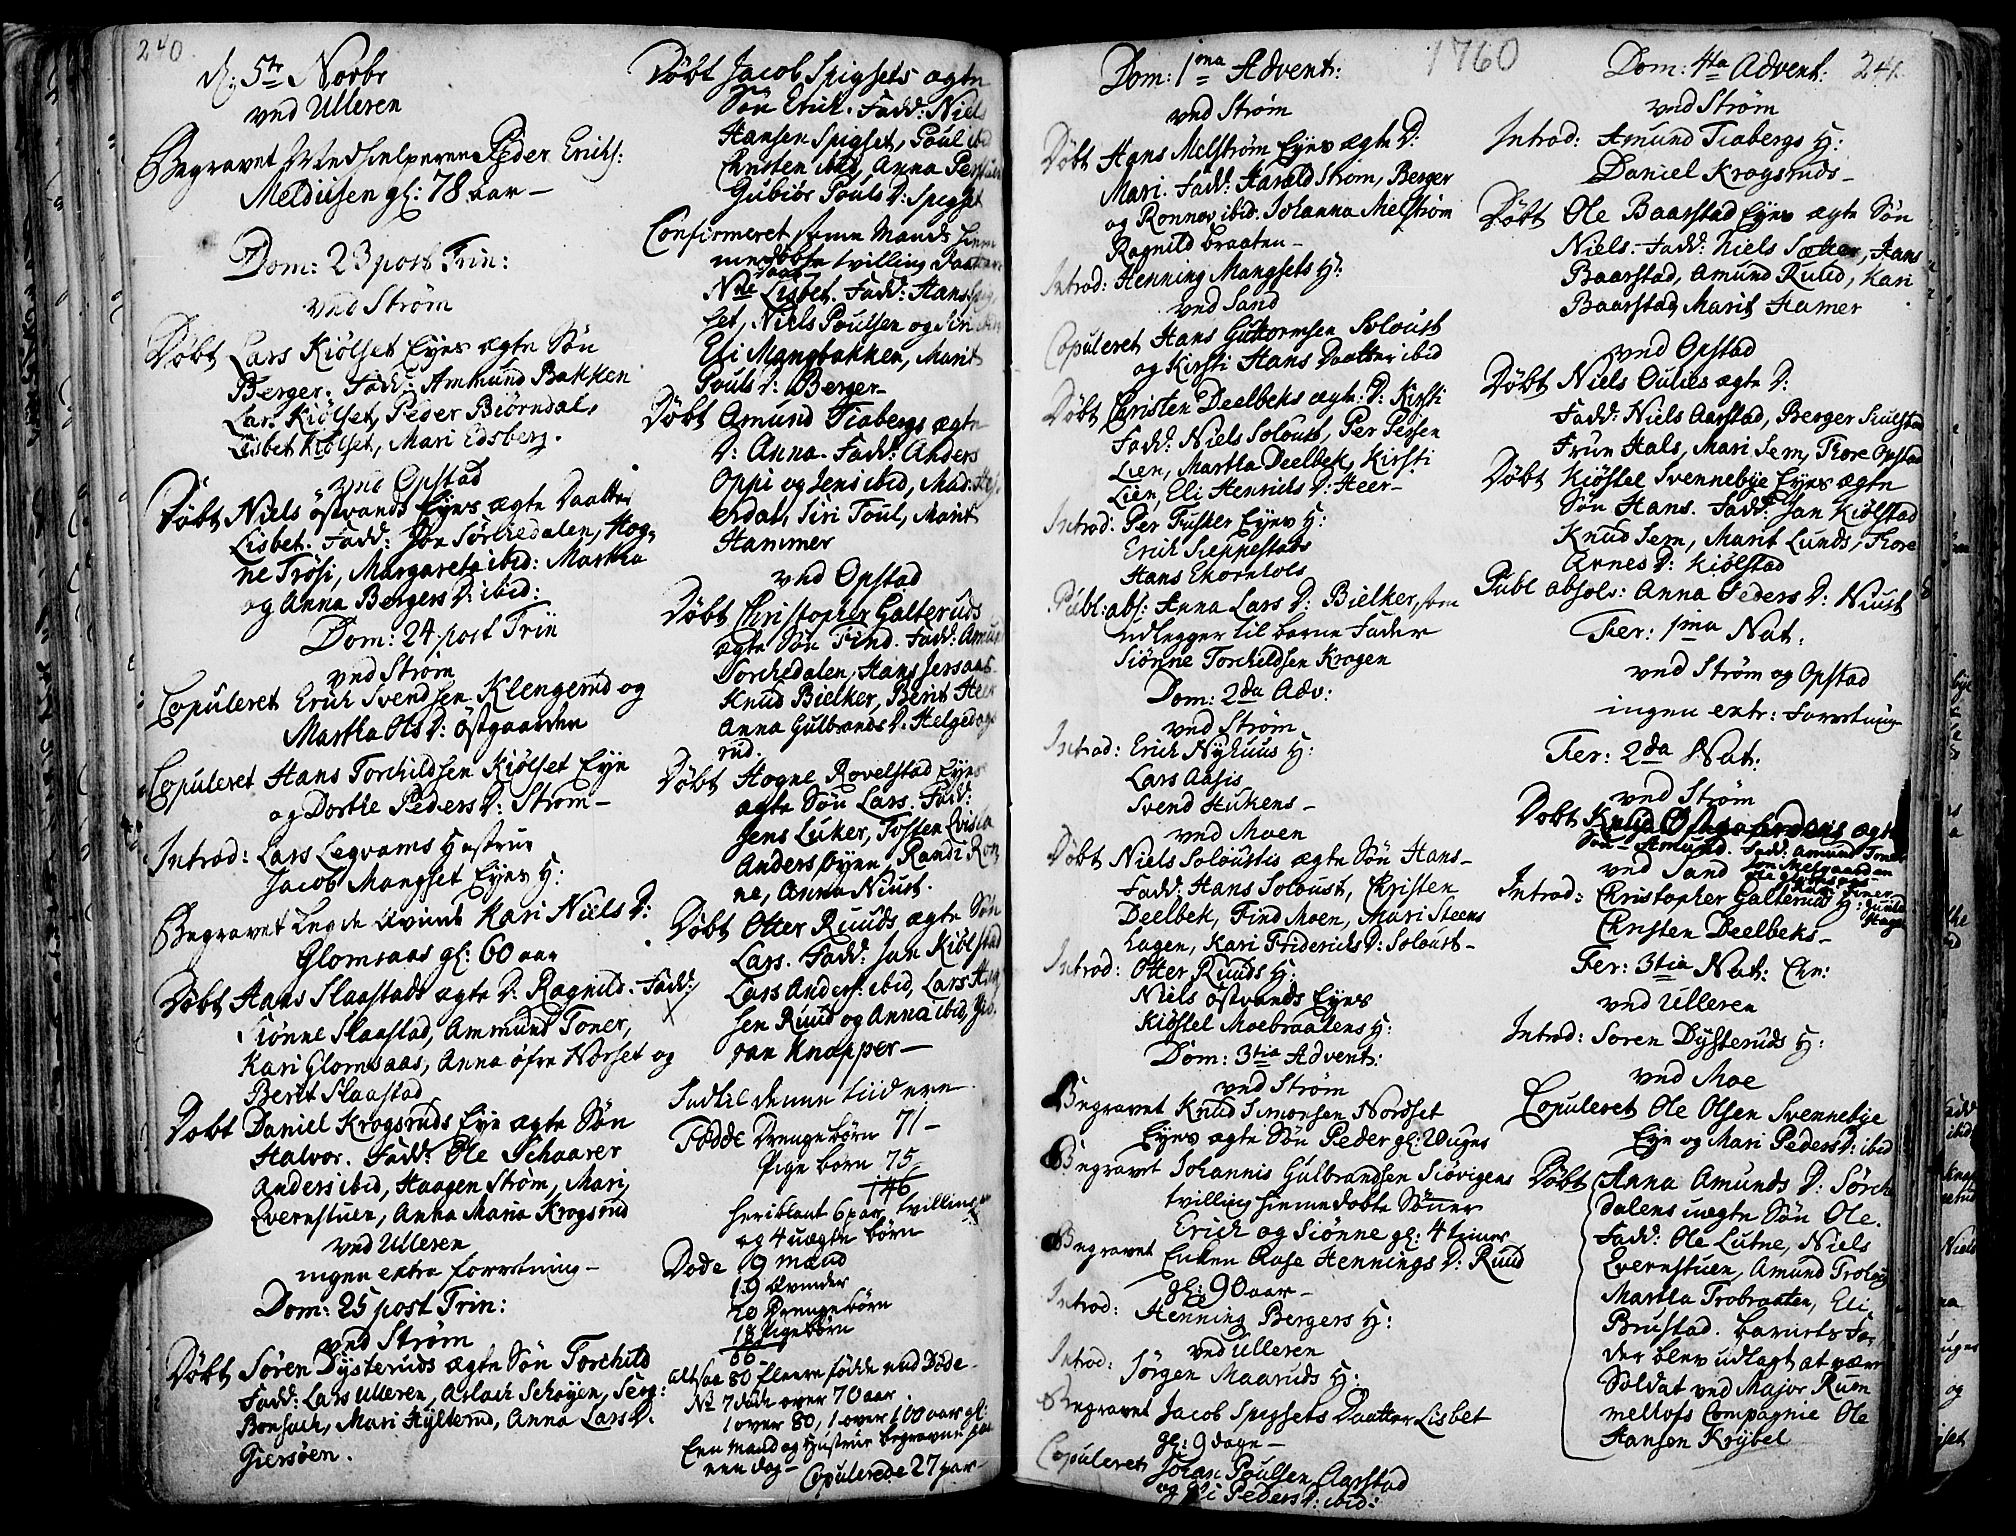 240
d: 5te Novbr
ved Ulleren
Begravet Medhielperen Peder Erichs:
Meldiisen gl: 78 aar –
Dom: 23 post Trin:
ved Strøm
Døbt Lars Kiølset Eyes ægte Søn
Berger. Fadd: Ammund Bakken
Lars Kiølset, Peder Biørndal,
Lisbet Kiølset, Mari Edsberg.
ved Opstad
Døbt Niels Østvands Eyes ægte Daatter
Lisbet. Fadd: Jon Sørchedalen, Hog-
ne Trøsi, Margareta ibid: Martha
og Anna Bergers D: ibid:
Dom: 24 post Trin
ved Strøm
Copuleret Erich Svendsen Klengerud og
Martha Ols D: Østgaarden
Copuleret Hans Torchildsen Kiølset Eye
og Dorthe Peders D: Strøm –
Introd: Lars Legvams Hustrue
Jacob Mangset Eyes H:
Begravet Legde Qvinde Kari Niels D:
Glomsaas gl: 60 aar
Døbt Hans Slaastads ægte D: Ragnild. Fadd:
Siønne Slaastad, Ammund Toner,
Kari Glomsaas, Anna øfre Norset og
Berit Slaastad
Døbt Daniel Krogsruds Eye ægte Søn
Halvor. Fadd: Ole Schaarer
Anders ibid, Haagen Strøm, Mari
Evernstuen, Anna Maria Krogsrud
ved Ulleren
ingen extra forretning –
Dom: 25 post Trin:
ved Strøm
Døbt Søren Dysteruds ægte Søn Torchild
Fadd: Lars Ulleren, Aslach Schøyen, Serg:
Bonsach, Mari Hylterud, Anna Lars D:
Giersøen.
Døbt Jacob Spigsets ægte
Søn Erich. Fadd: Niels
Hansen Spigset, Poul ibid
Christen ibid, Anna
Gubiør Pouls D: Spigset
Confirmeret samme Mands hiem
medøbte tvilling Daatter
Nle Lisbet. Fadd: Hans Spig-
set, Niels Poulsen og
Eli Mangbakken, Marit
Pouls D: Berger –
Døbt Amund Tiabergs ægte
D: Anna. Fadd: Anders
Oppi og Jens ibid, Mad:
erdal, Siri Toul, Marit
Hammer
ved Opstad
Døbt Christopher Galteruds
ægte Søn Find. Fadd: Amund
Sorchedalen, Hans Jersaas
Knud Bielker, Berit Heer
Anna Gulbrands D: Helgedags
rud.
Døbt Hogne Rovelstad Eyes
ægte Søn Lars. Fadd:
Jens Luker, Tosten Qvisla
Anders Øyen, Randi Ron
ne, Anna Niust.
Døbt Otter Ruuds ægte Søn
Lars. Fadd: Jan Kiølstad
Lars Anders: ibid, Lars
sen Ruud og Anna ibid,
ran Knapper –
Indtil denne tiid ere
Fødde Drenge børn 71 –
Pige børn 75
146
heriblant 6 par tvillinger
og 4 uægte børn
Døde 9 mænd
19 Qvinder
20 Drengebørn
18 Pigebørn
66
altsaa 80 fleere fødde end Døde –
NB 7 døde over 70 aar
1 over 80, 1 over 100 aar gl:
Een mand og Hustrue begravne paa
een dag – Copulerede 27 par –
Dom: 1ma Advent:
1760
ved Strøm
Døbt Hans Melstrøm Eyes ægte D:
Mari. Fadd: Harald Strøm, Berger
og Ronnov ibid. Johanna Melstrøm
Ragnild braaten –
Introd: Henning Mangsets H:
ved Sand
Copuleret Hans Guttormsen Soloust
og Kirsti Hans Daatter ibid
Døbt Christen Deelbeks ægte D: Kirsti
Fadd: Niels Soloust, Per Persen
Lien, Martha Deelbek, Kirsti
Lien, Eli Henrichs D: Heer –
Introd: Per Fusker Eyes H:
Erich Seppestads
Hans Ekornhols
Publ: abs: Anna Lars D: Bielker, som
udlegger til barne Fader
Siønne Torchildsen Krogen
Dom: 2da Adv:
ved Strøm
Introd: Erich Nyhuus H:
Lars Aasis
Svend Hukens –
ved Moen
Døbt Niels Soloustis ægte Søn Hans –
Fadd: Hans Soloust, Christen
Deelbek, Find Moen, Mari Steens
hagen, Kari Friderichs D: Soloust –
Introd: Otter Ruuds H:
Niels Østvands Eyes
Kiøstel Moebraatens H:
Dom: 3tia Advent:
ved Strøm
Begravet Knud Simonsen Nordset
Eyes ægte Søn Peder gl: 2 Uger
Begravet Johannis Gulbrandsen Siøvigens
tvilling hiemmedøbte Sønner
Erich og Siønne gl: 4 timer
Begravet Enken Aase Hennings D: Ruud
gl: 90 aar –
Introd: Henning Bergers H:
ved Ulleren
Introd: Jørgen Maaruds H:
Begravet Jacob Spigsets Daatter Lisbet
gl: 9 dage –
Copuleret Johan Poulsen Aarstad
og Eli Peders D: ibid:
Dom: 4ta Advent: 241
ved Strøm
Introd: Amund Tiabergs H:
Daniel Krogsruds –
Døbt Ole Baarstad Eyes ægte Søn
Niels. Fadd: Niels Sætter, Hans
Baarstad, Amund Ruud, Kari
Baarstad, Marit Hamer
ved Opstad
Døbt Niels Oulies ægte D:
Fadd: Niels Aarstad, Berger Kiulstad
Frue Hals, Mari Sem, Thore Opstad
Døbt Kiøstel Svennebye Eyes ægte
Søn Hans. Fadd: Jan Kiølstad
Knud Sem, Marit Lunds, Thore
Arnes D: Kiølstad
Publ absol: Anna Peders D: Niust
Fer: 1ma Nat:
ved Strøm og Opstad
ingen extr: Forretning
Fer: 2da Nat:
ved Strøm
Døbt Knud ægte
Søn Amund. Fadd: Amund Toner
ved Sand
Introd: Christopher Galteruds H:
Christen Deelbeks –
Fer: 3tia Nat: Chr:
ved Ulleren
Introd: Soren Dysteruds H:
ved Moe
Copuleret Ole Olsen Svennebye
Eye og Mari Peders D: ibid
Døbt Anna Amunds D: Sørche
dalens uægte Søn Ole.
Fadd: Ole Lutne, Niels
Evernstuen, Amund
Martha Trobraaten, Eli
Brustad. barnets Fa-
der blev udlagt at være
Soldat ved Major Rum
melhofs Compagnie Ole
Hansen Krybel